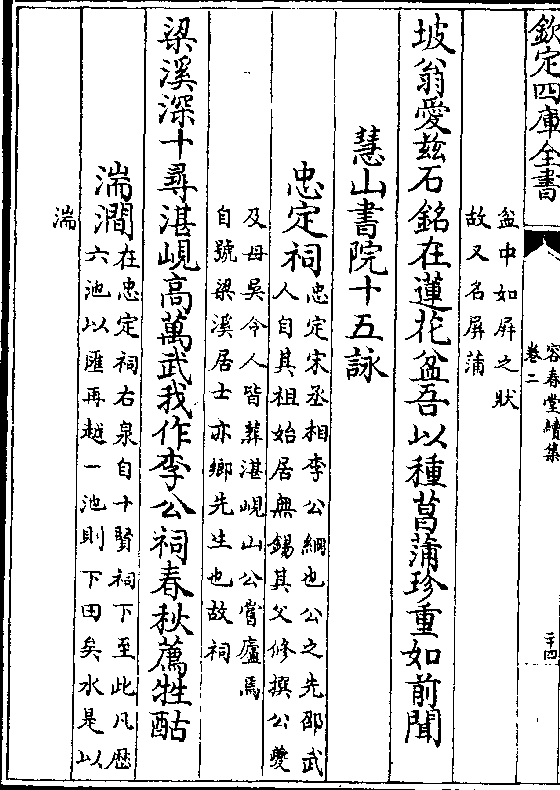 欽定四庫全書
容春堂續集
卷二
二十四
盆中如屏之狀
故又名屏蒲
坡翁愛茲石銘在蓮花盆吾以種菖蒲珍重如前聞
慧山書院十五詠
忠定祠
忠定宋丞相李公綱也公之先邵武
人自其祖始居無錫其父修撰公夔
及母吳令人皆葬湛峴山公嘗廬焉
自號梁溪居士亦鄉先生也故祠
梁溪深十尋湛峴高萬武我作李公祠春秋薦牲酤
湍澗
在忠定祠右泉自十賢祠下至此凡歴
六池以匯再越一池則下田矣水是以
湍